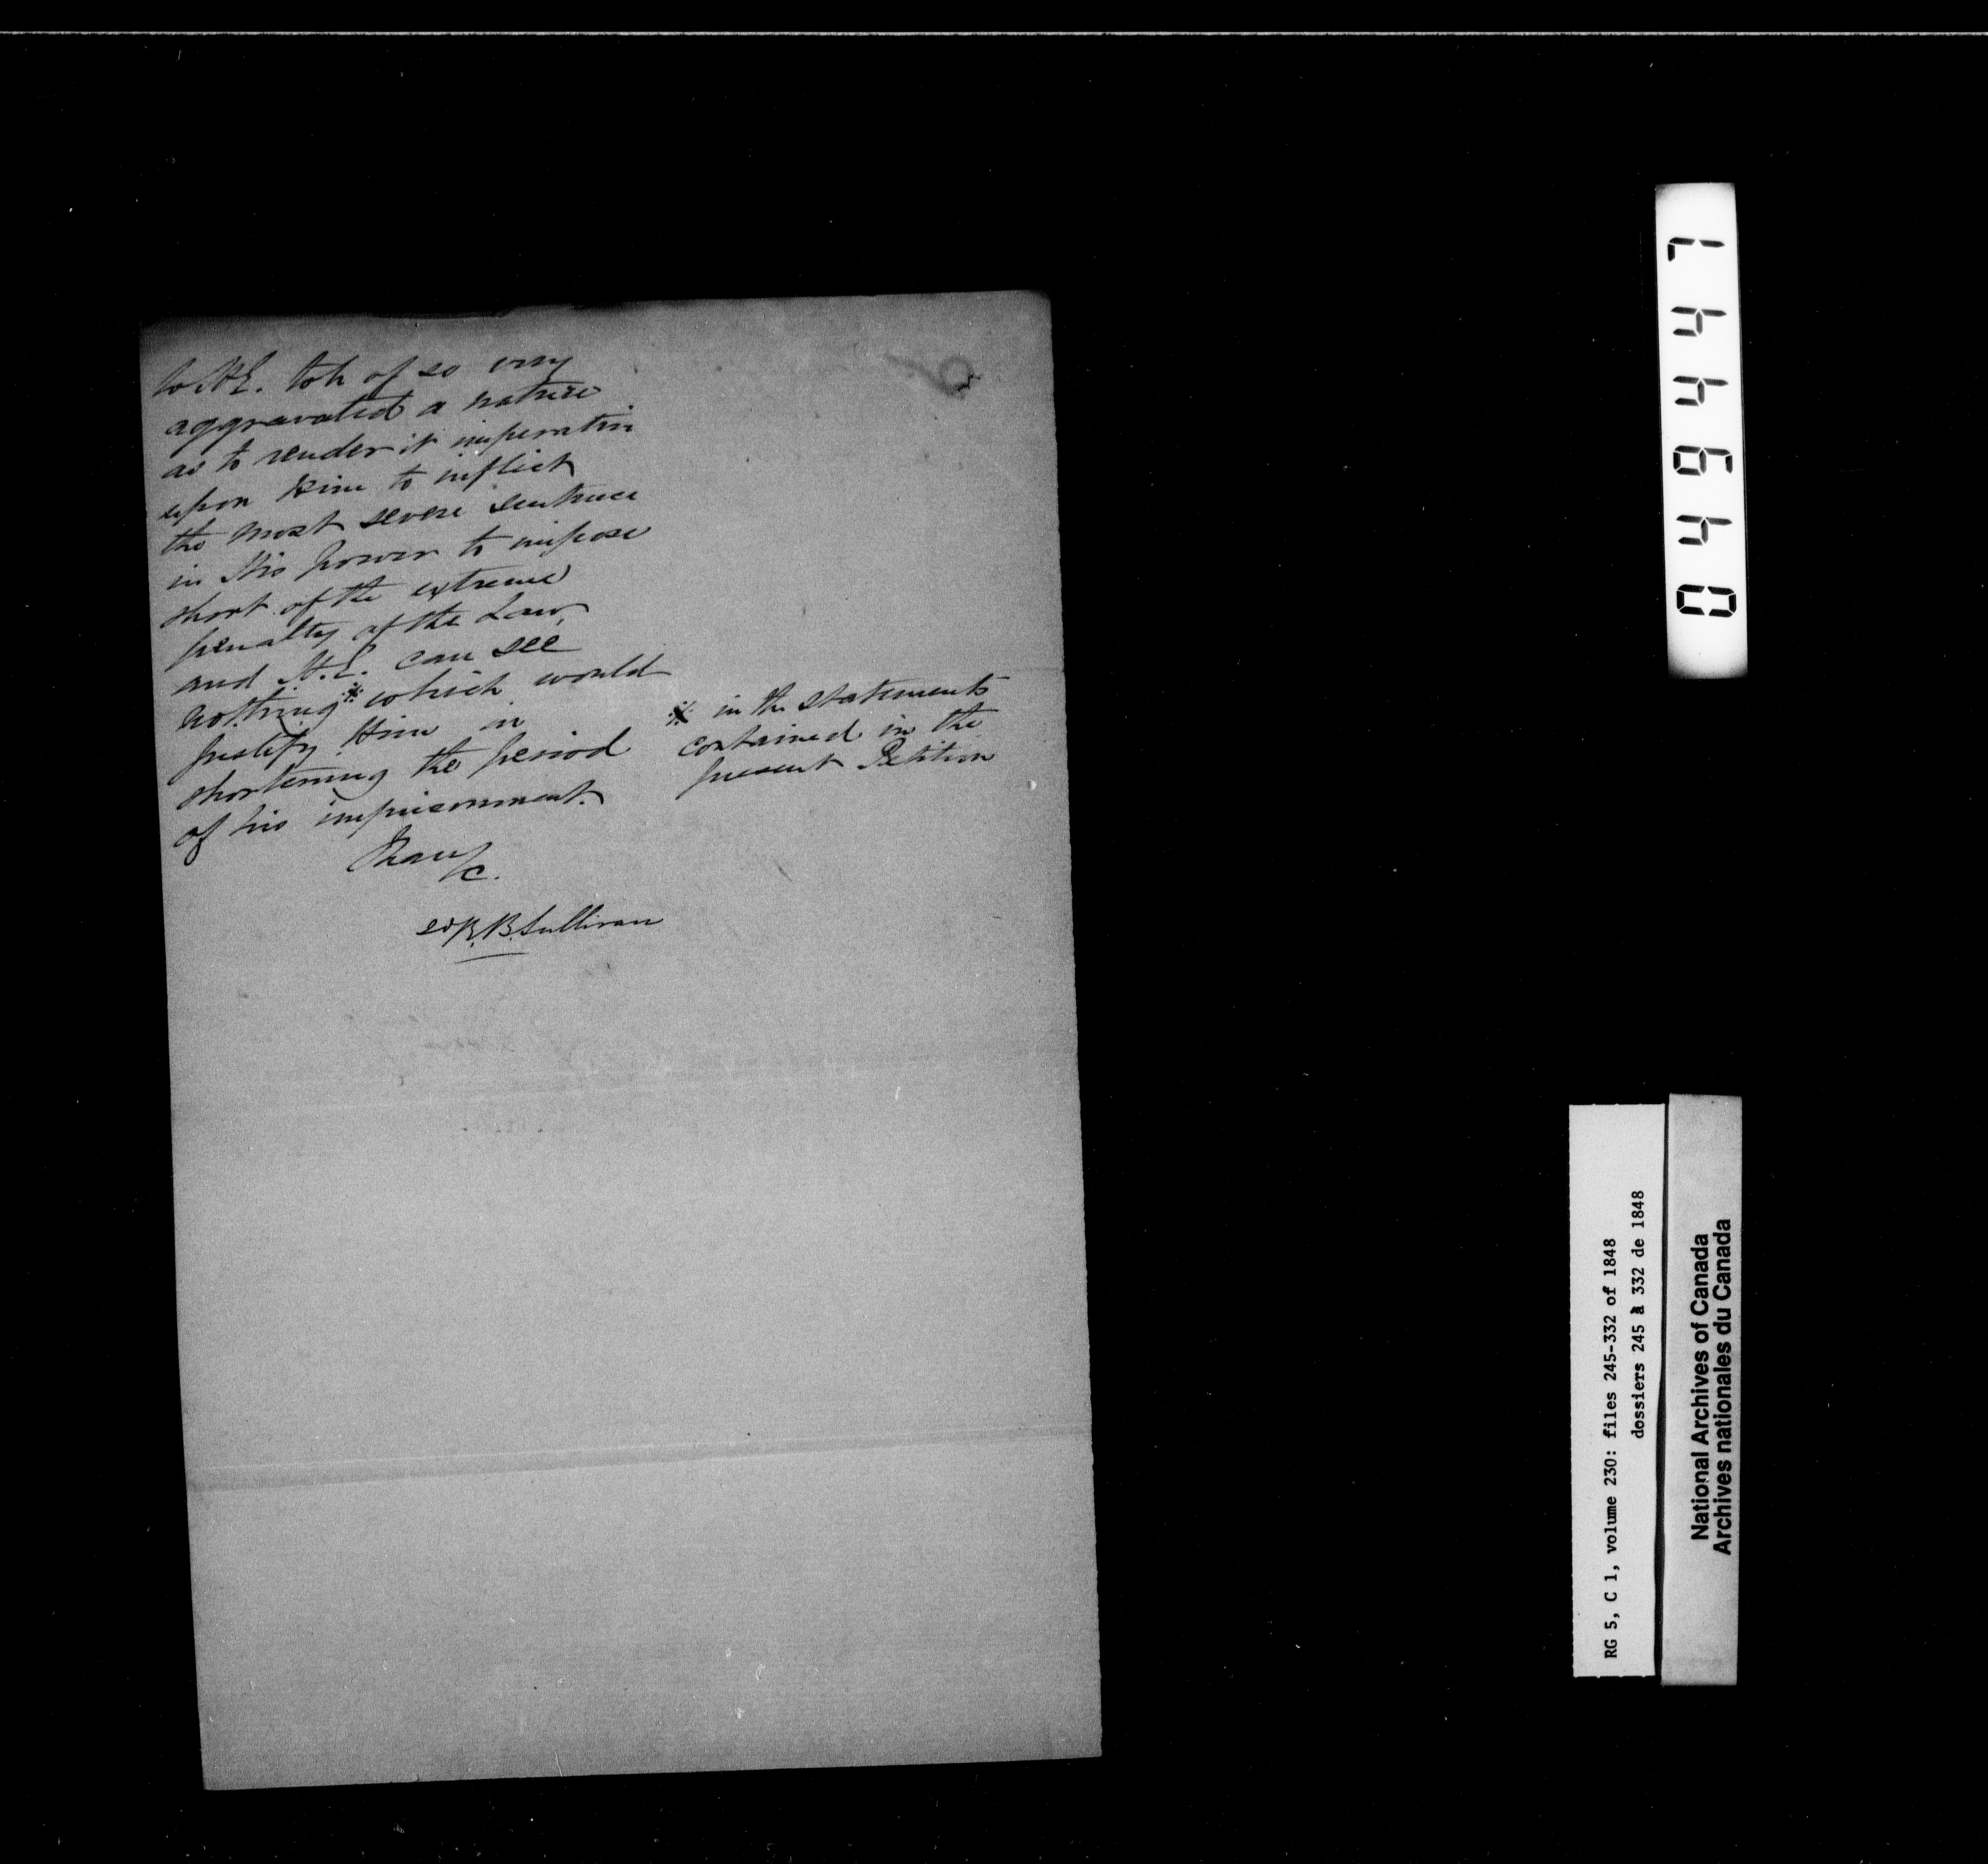 to H.E. to be of so very
aggravated a nature
as to render it imperative
upon Him to inflict
the most severe sentence
in His power to impose
short of the extreme
penalty of the Law,
and H.E. can see
nothing※ which would
justify Him in
shortening the period
of his imprisonment.
※ in the statements
contained in the
present Petition
I have &c.
sd R.B. Sullivan
044647
RG 5, C 1, volume 230: files 245-332 of 1848
dossiers 245 à 332 de 1848
National Archives of Canada
Archives nationales du Canada